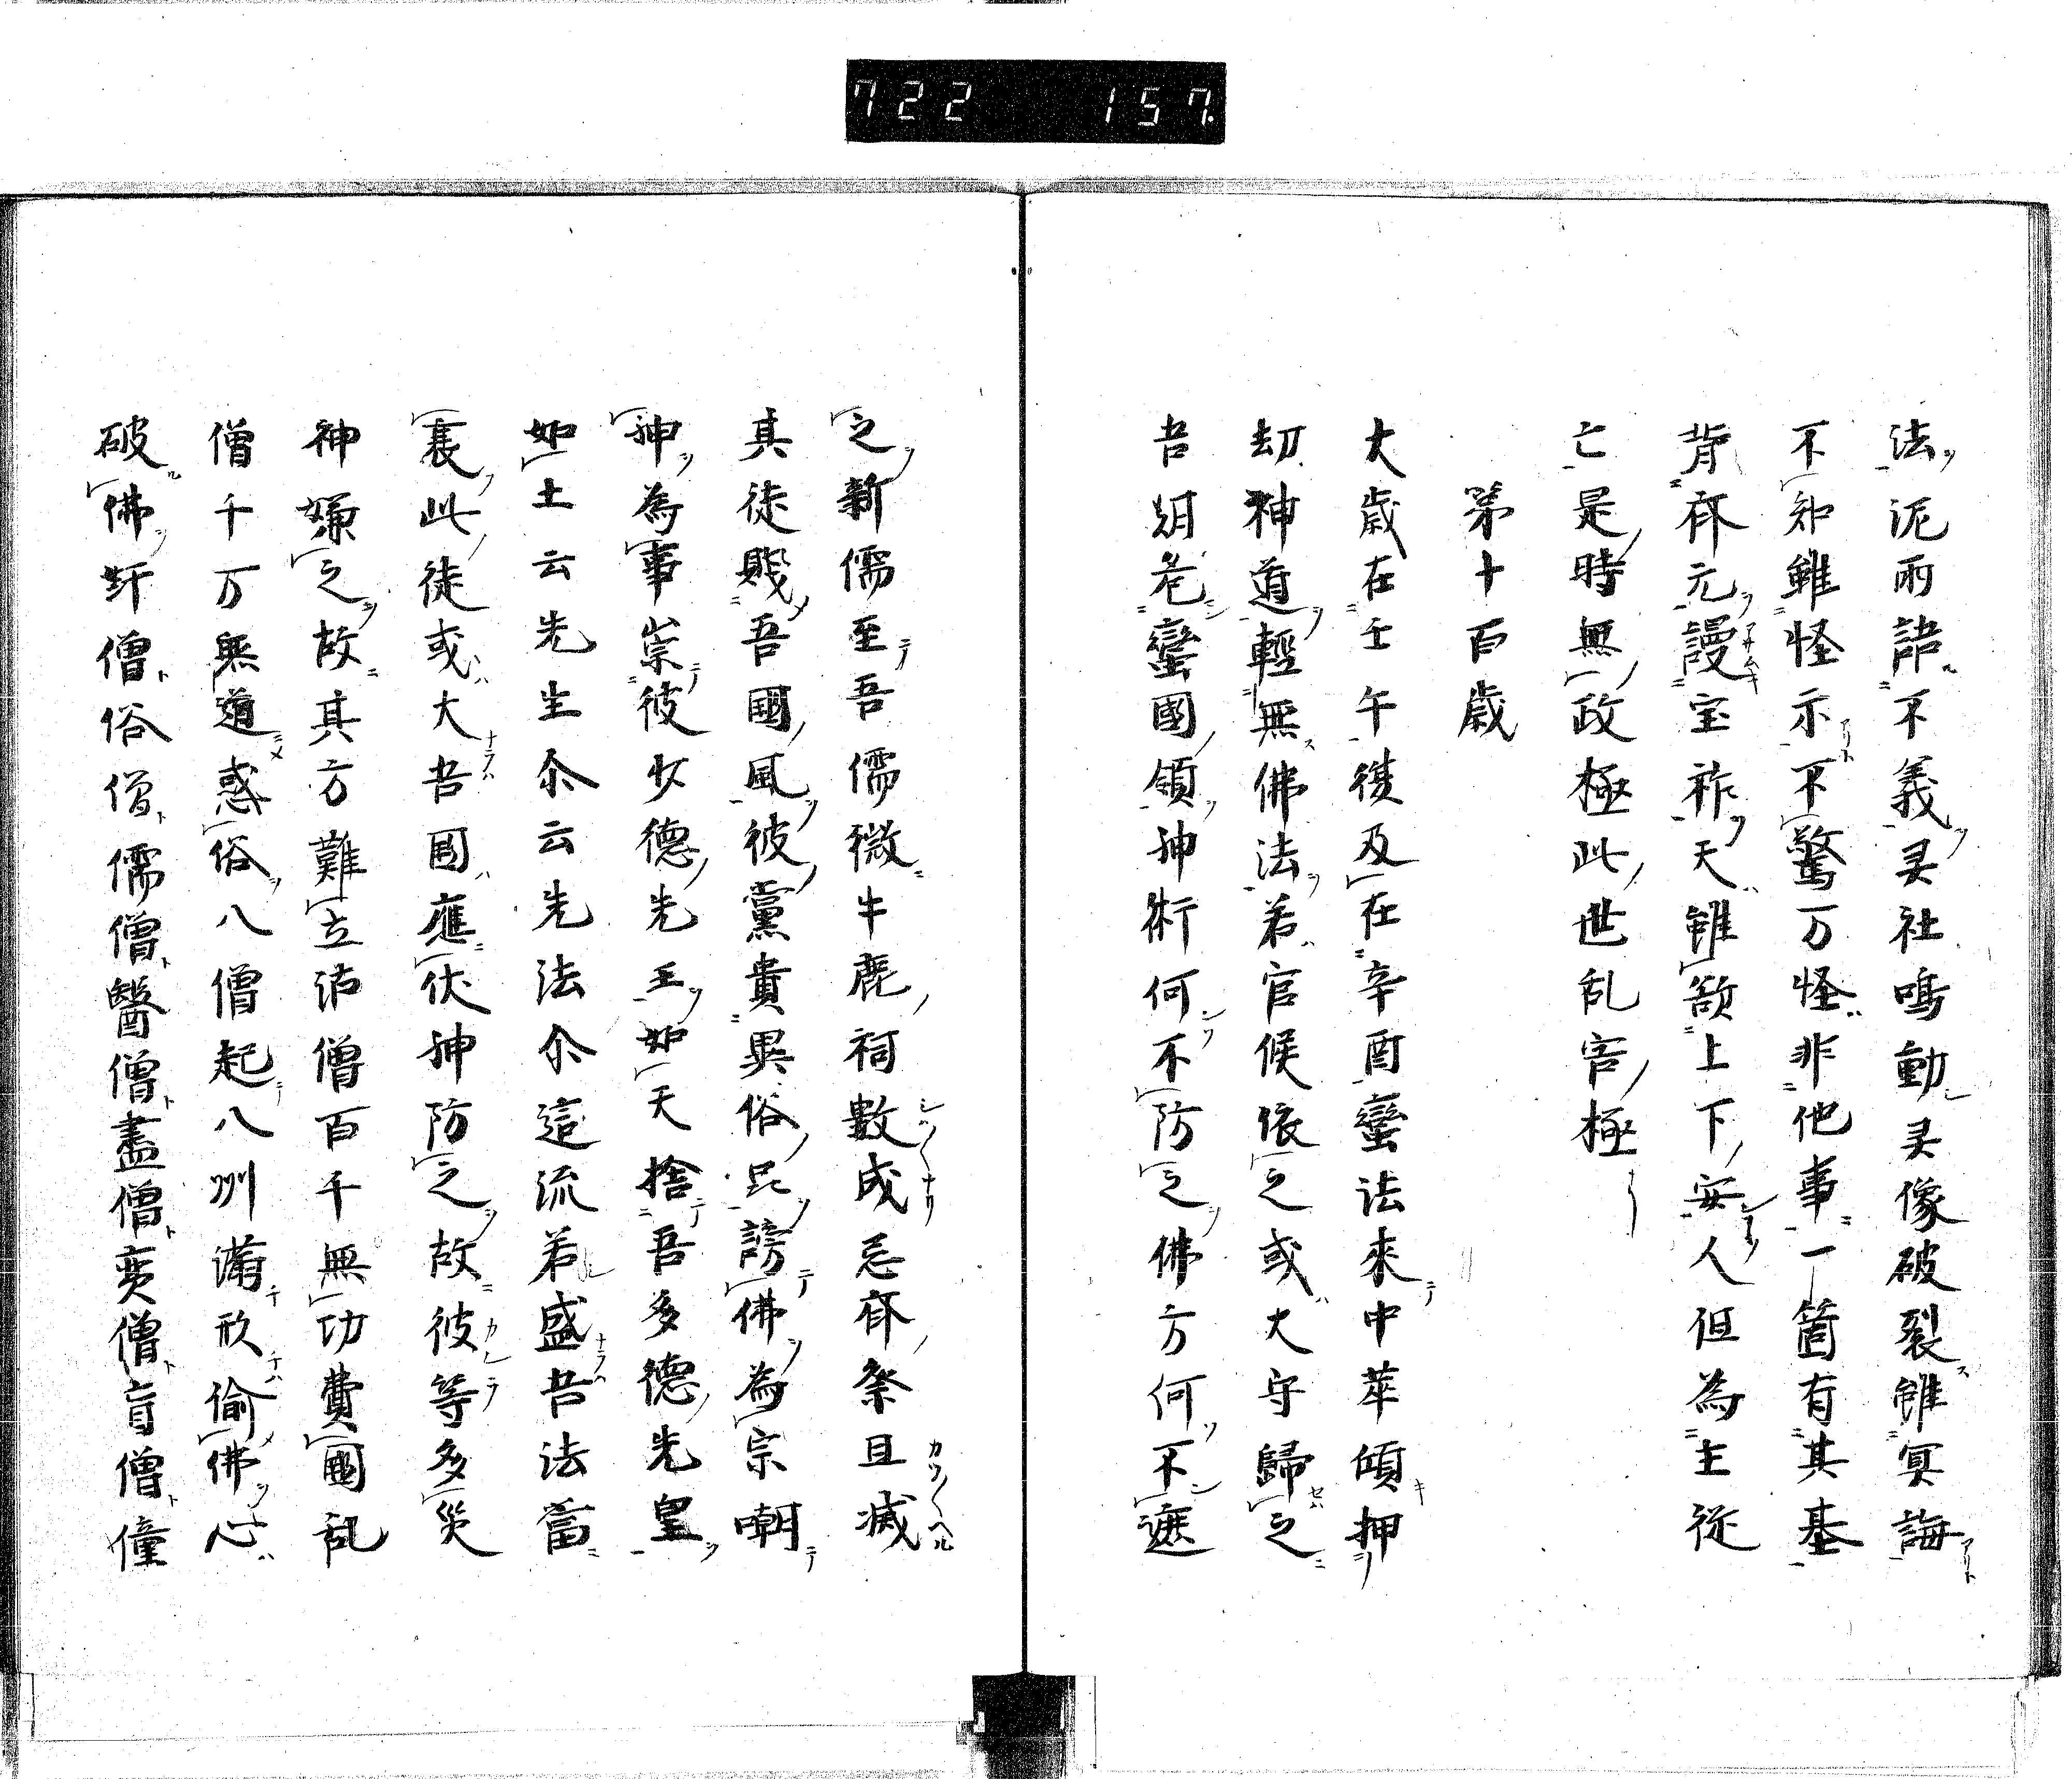 722 157
法泥雨諱不義灵社鳴動灵像破裂雖冥誨
不知雖怪示不驚万怪非他事一箇有其基
背齊元謾宝祚天雖籔上下安人但為主従
亡是時無政極此世乱害極
第十百歳
大歳在壬午後及在辛酉蠻法來中華傾押
刧神道輕無佛法若官候依之或大守歸之
吾朋危蠻國領神術何不防之佛方何不遮
之新儒至吾儒微牛鹿祠數成忌齊祭且滅
其徒賤吾國風彼黨貴異俗呪謗佛為宗嘲
神為事崇彼少德先王如天捨吾多德先皇
如土云先生尒云先法尒這流若盛吾法當
衰此徒或大吾国應伏神防之故彼等多災
神嫌之故其方難立沽僧百千無功費國乱
僧千万無道惑俗八僧起八州满形偷佛心
破佛奸僧俗僧儒僧醫僧盡僧賣僧盲僧僮